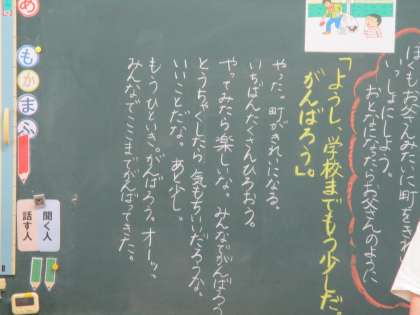 ぼくもお父さんみたいに町をきれ
いっしょにしよう。
おとなになったらお父さんのように
「ようし、学校までもう少しだ。
がんばろう」。
やった。町がきれいになる。
いちばんたくさんひろおう。
やってみたら楽しいな。みんなでがんばろう
とうちゃくしたら気もちいいだろうな。
いいことだな。あと少し。
もうひといき。がんばろう。オーッ。
みんなでここまでがんばってきた。
あ
も
か
ま
ふ
聞く人
話す人